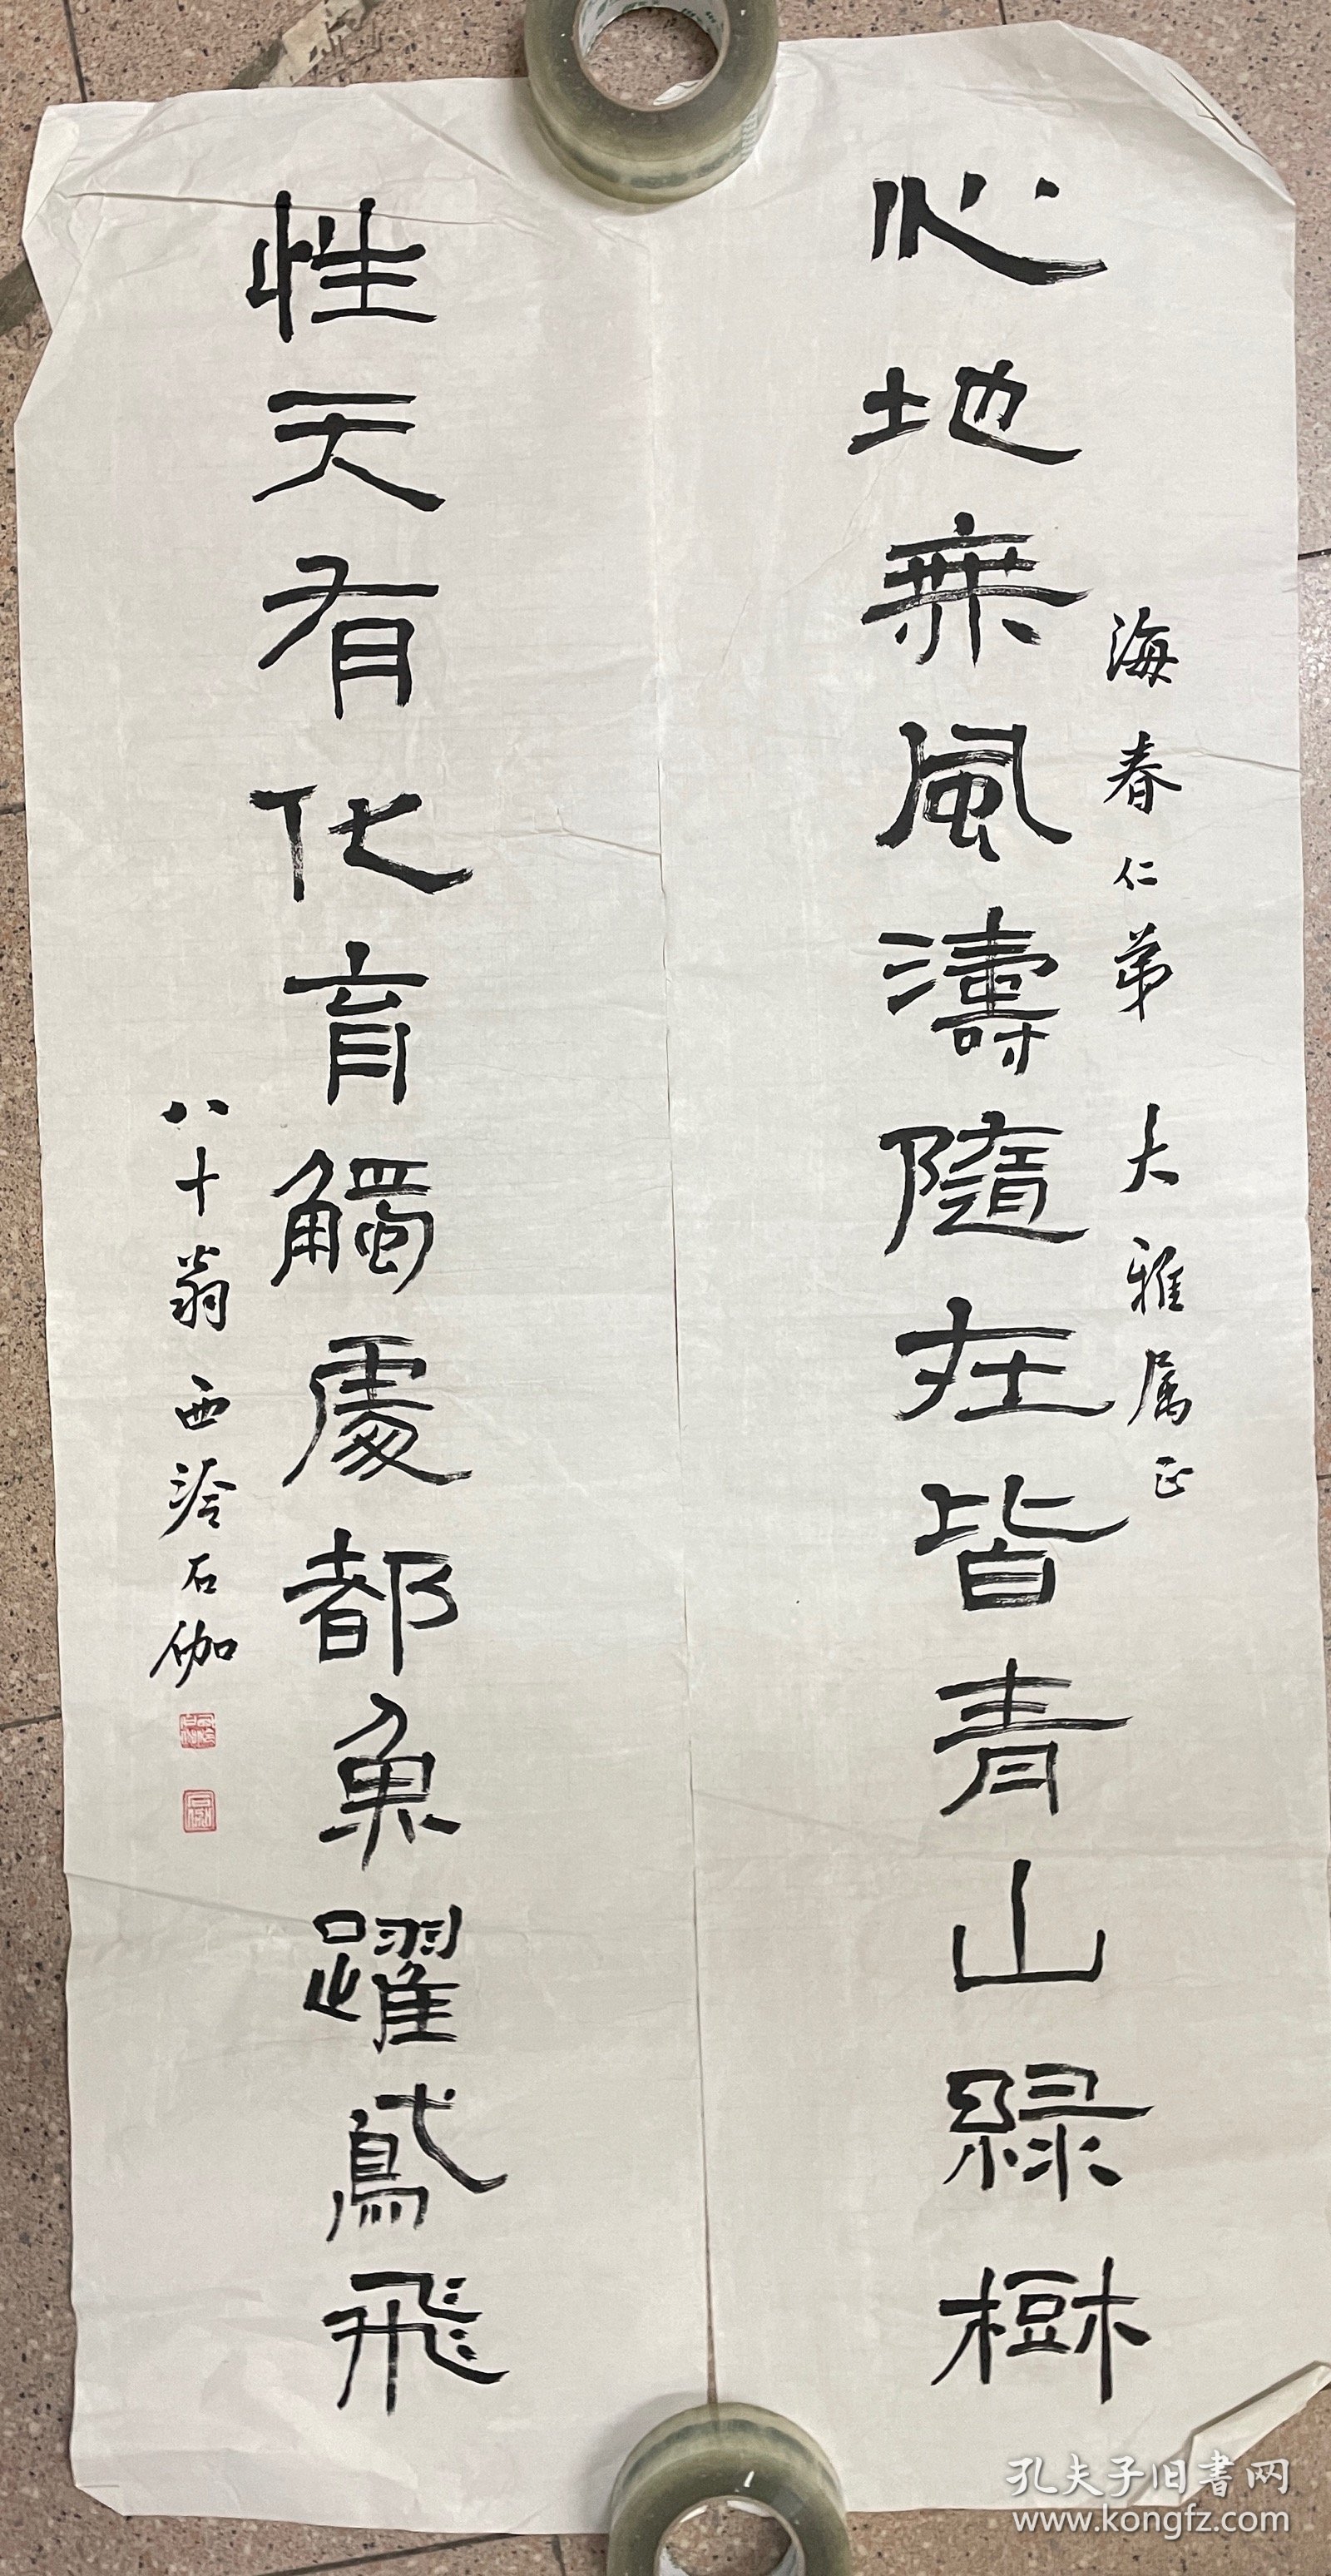 海春仁弟 大雅属正
心地無風濤隨在皆青山綠樹
性天有化育觸處都魚躍鳶飛
八十翁西泠石伽
孔夫子旧書网
www.kongfz.com